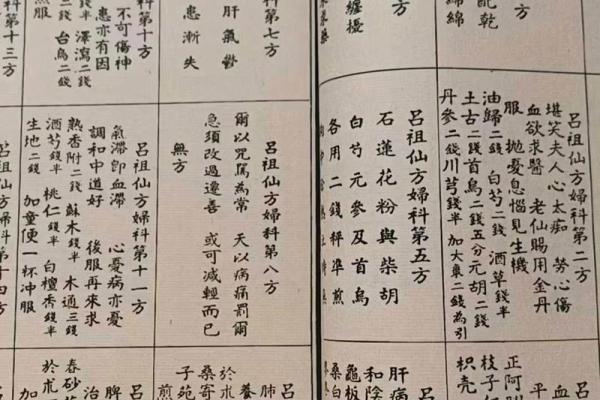 方
配乾
綿綿
方
纏擾
呂祖仙方婦科第二方
堪笑夫人心太痴 勞心傷
血欲求醫 老仙賜用金丹
服 拋憂息惱見生機
油歸二錢 白芍二錢 酒草錢半
土古二錢 首烏二錢五分 元胡二錢
丹參二錢 川芎錢半 加大棗二錢為引
呂祖仙方婦科第五方
石蓮花粉與柴胡
白芍元參及首烏
各用二錢秤準煎
呂
血
平
正阿
枝子仁
枳壳
呂
肝病
和陰
龜板
桑白
科第七方
肝氣鬱
患漸失
科第十方
不可傷神
患亦有因
錢半 澤瀉二錢
錢 台烏二錢
煎服
科第十三方
呂祖仙方婦科第八方
爾以咒罵為常 天以病痛罰爾
急須改過遷善 或可減輕而已
無方
呂祖仙方婦科第十一方
氣滯卽血滯 心憂病亦憂
調和中道好 後服再來求
熟香附二錢 蘇木錢半 木通三錢
酒芍錢半 桃仁錢半 白檀香錢半
生地二錢 加童便一杯冲服
呂祖仙方婦科第十四方
呂
肺
養
於朮
桑寄
子苑
煎
呂
脾
治
春砂
於朮
加